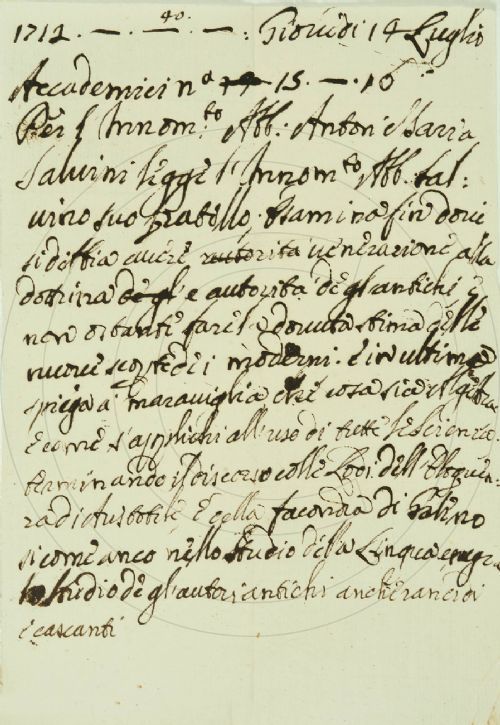 40.
1712. — . — . — . : Giovedi 14 Luglio
Accademici nº 14 15. — . 16
Per l'Innom.to Abb. Anton Maria
Salvini legge l'Innom.to Abb. Sal:
vino suo fratello. Esamina fin dove
si debbia avere autorita venerazione alla
dottrina degl e autorità degl'antichi e
non ostante fare la dovuta stima delle
nuove scoperte de i moderni. E in ultimo
spiega a maraviglia che cosa sia
e come s'applichi all'uso di tutte le scienze
terminando il discorso colle Lodi dell'Eloquen:
za di Aristotile e della facondia di
si come anco nello studio della Lingua
lo studio degl'autori antichi anche rancidi
e cascanti